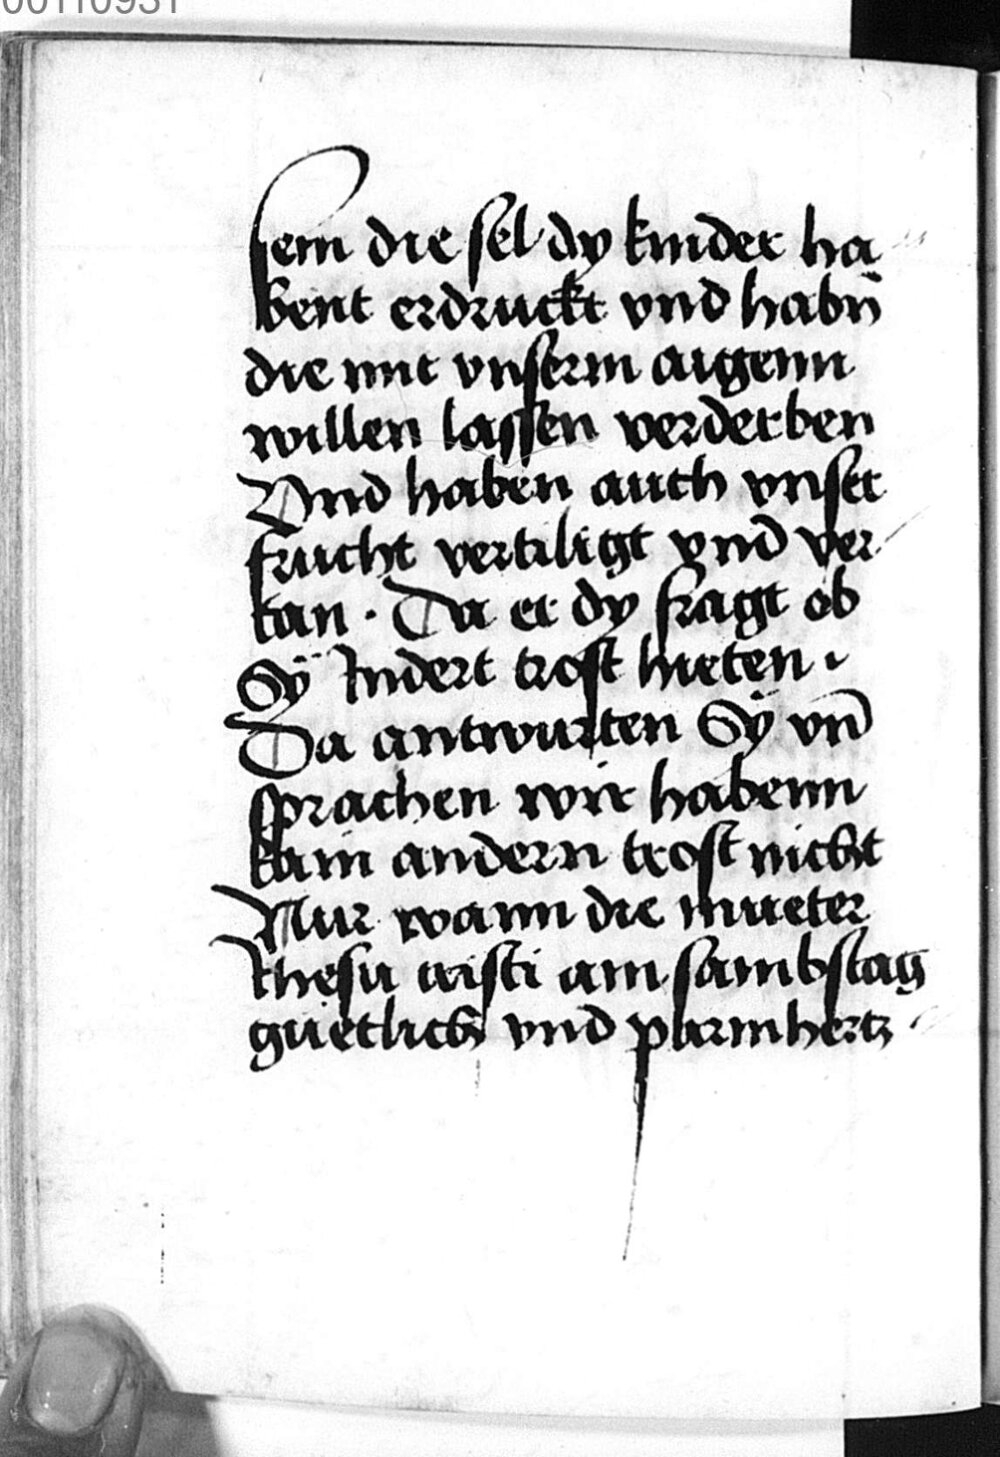 00110931
sein die sel dy kinder ha
bent erdruckt vnd habn̄
die mit vnserm aigenn
willen lassen verderben
Vnd haben auch vnser
frucht vertiligt vnd ver
tan · Da er dy fragt ob
Sÿ Indert trost hieten ·
Da antwurten Sÿ vn̄d
sprachen wir habenn
kain andern trost nicht
Nur wann die mueter
Ihesu cristi am sambstag
guetlich vnd parmhertz